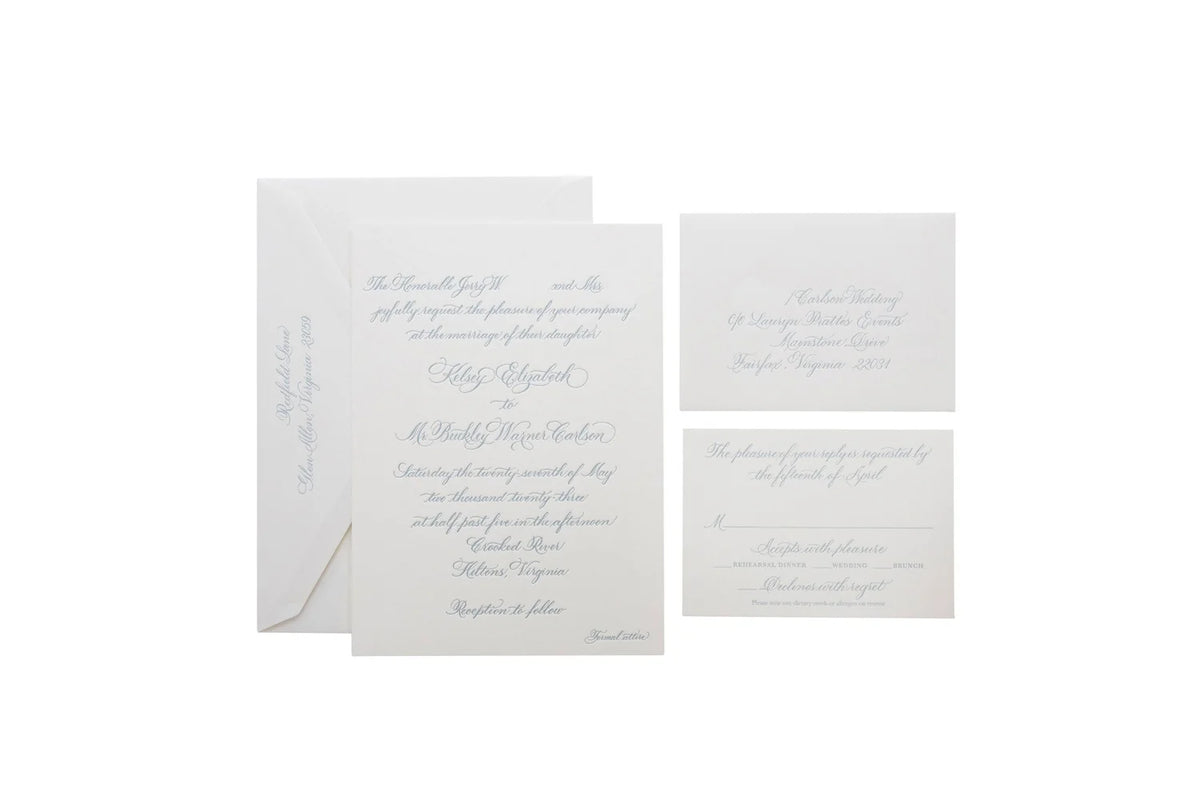 Redfield Lane
Glen Allen, Virginia 23059
The Honorable Jerry W. and Mrs.
joyfully request the pleasure of your company
at the marriage of their daughter
Kelsey Elizabeth
to
Mr. Buckley Warner Carlson
Saturday the twenty-seventh of May
two thousand twenty-three
at half past five in the afternoon
Crooked River
Hiltons, Virginia
Reception to follow
Formal attire
Carlson Wedding
c/o Lauryn Prattes Events
Mainstone Drive
Fairfax, Virginia 22031
The pleasure of your reply is requested by
the fifteenth of April
M
Accepts with pleasure
REHEARSAL DINNER WEDDING BRUNCH
Declines with regret
Please note any dietary needs or allergies on reverse